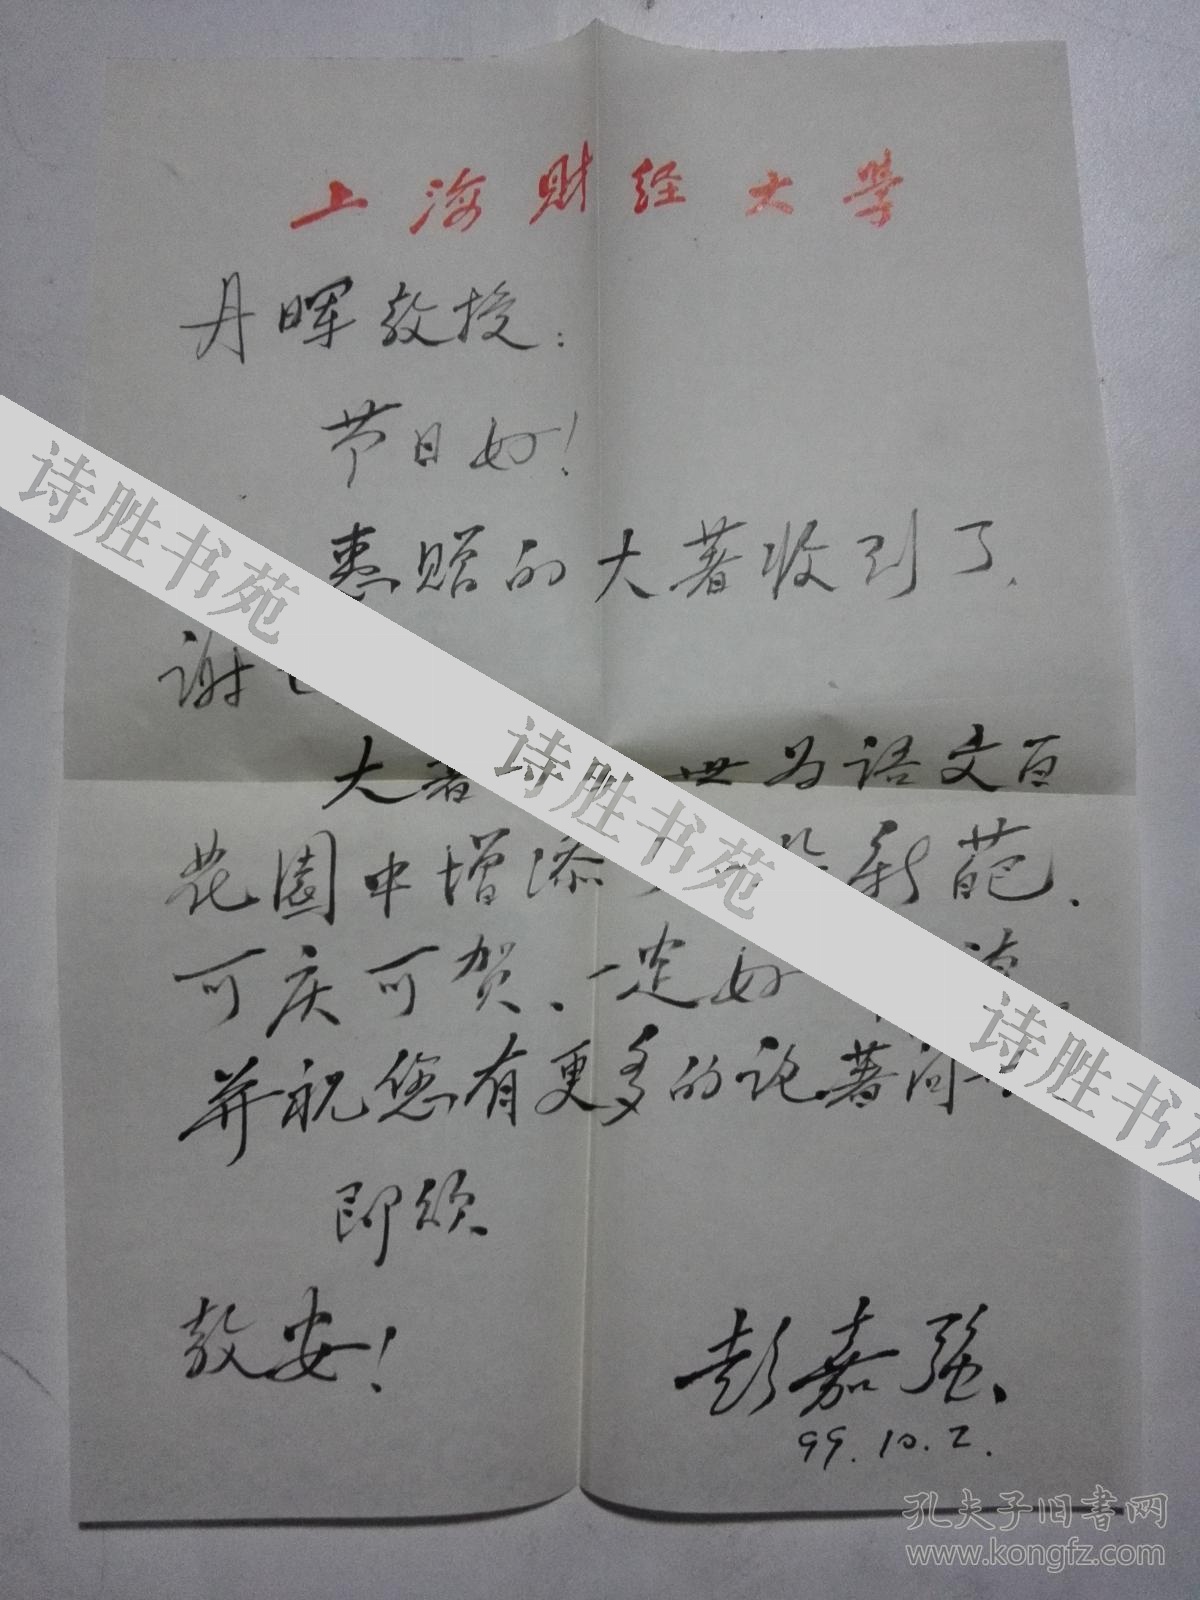 上海财经大学
丹晖教授:
节日好!
惠赠的大著收到了,
谢
大著世为语文百
花园中增添新葩,
可庆可贺,一定好读。
并祝您有更多的论著问
即颂
教安!
彭嘉强
99.10.2.
诗胜书苑
诗胜书苑
诗胜书苑
孔夫子旧书网
www.kongfz.com